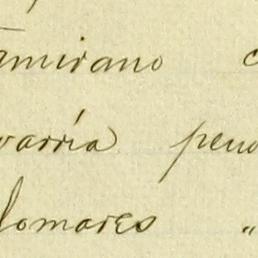 amirano c
varría pend
lomares "